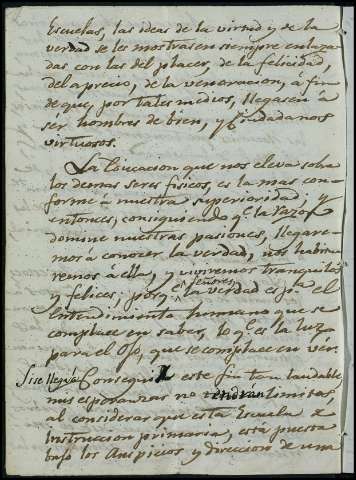 Escuelas, las ideas de la virtud y de la
verdad se les mostrasen siempre enlaza
das con las del placer, de la felicidad,
del aprecio, de la veneracion, á fin
de que, por tales medios, llegasen á
ser hombres de bien, y Ciudadanos
virtuosos.
La Educacion que nos eleva sobre
los demas seres fisicos, es la mas con-
forme á nuestra superioridad, y
entonces, consiguiendo q.e la razon
domine nuestras pasiones, llegare-
mos á conocer la verdad, nos habitua
remos á ella, y viviremos tranquilos
y felices; porq.e Señores, la verdad es p.a el
entendimiento humano que se
complace en saber, lo q.e es la luz
para el Ojo, que se complace en vér.
Si se llega á Conseguir este fin tan laudable,
mis esperanzas no tendrán limites,
al considerar que esta Escuela de
Instruccion primaria, está puesta
bajo los Auspicios y direccion de una